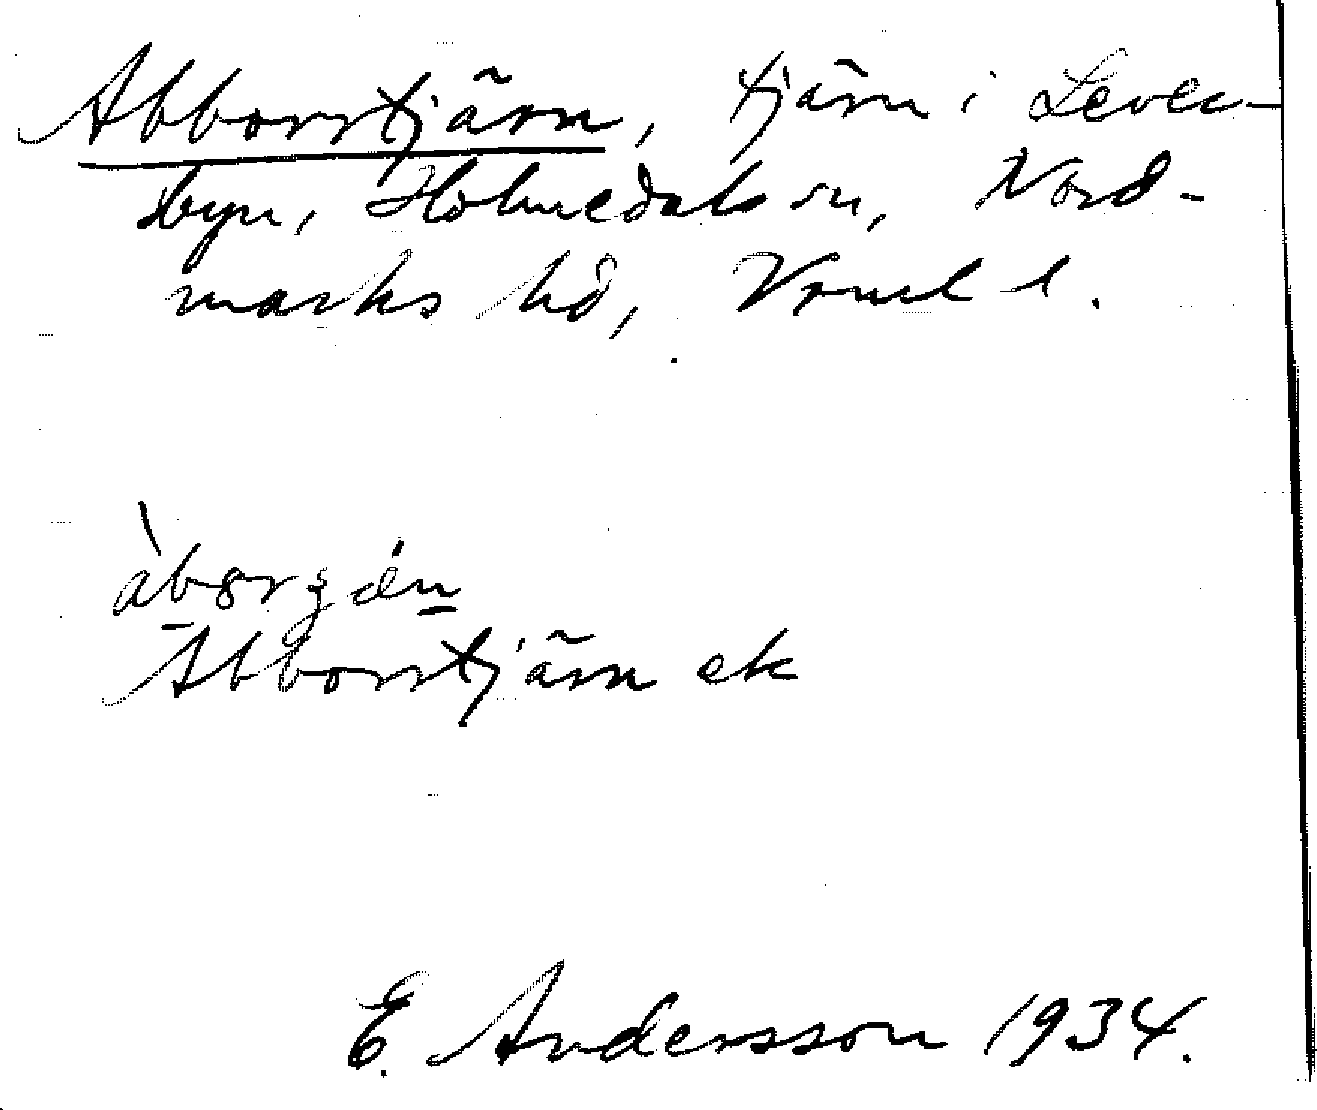 Abborrtjärn, tjärn i Leven-
byn, Holmedals sn, Nord-
marks hd, Vrml l.
Abborrtjärn ek
E. Andersson 1934.